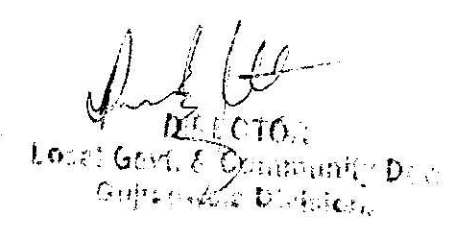 DIRECTOR
Local Govt. & Community Dev.
Gujranwala Division.